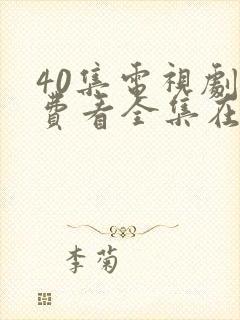 40集電視劇
費看全集在
李菊